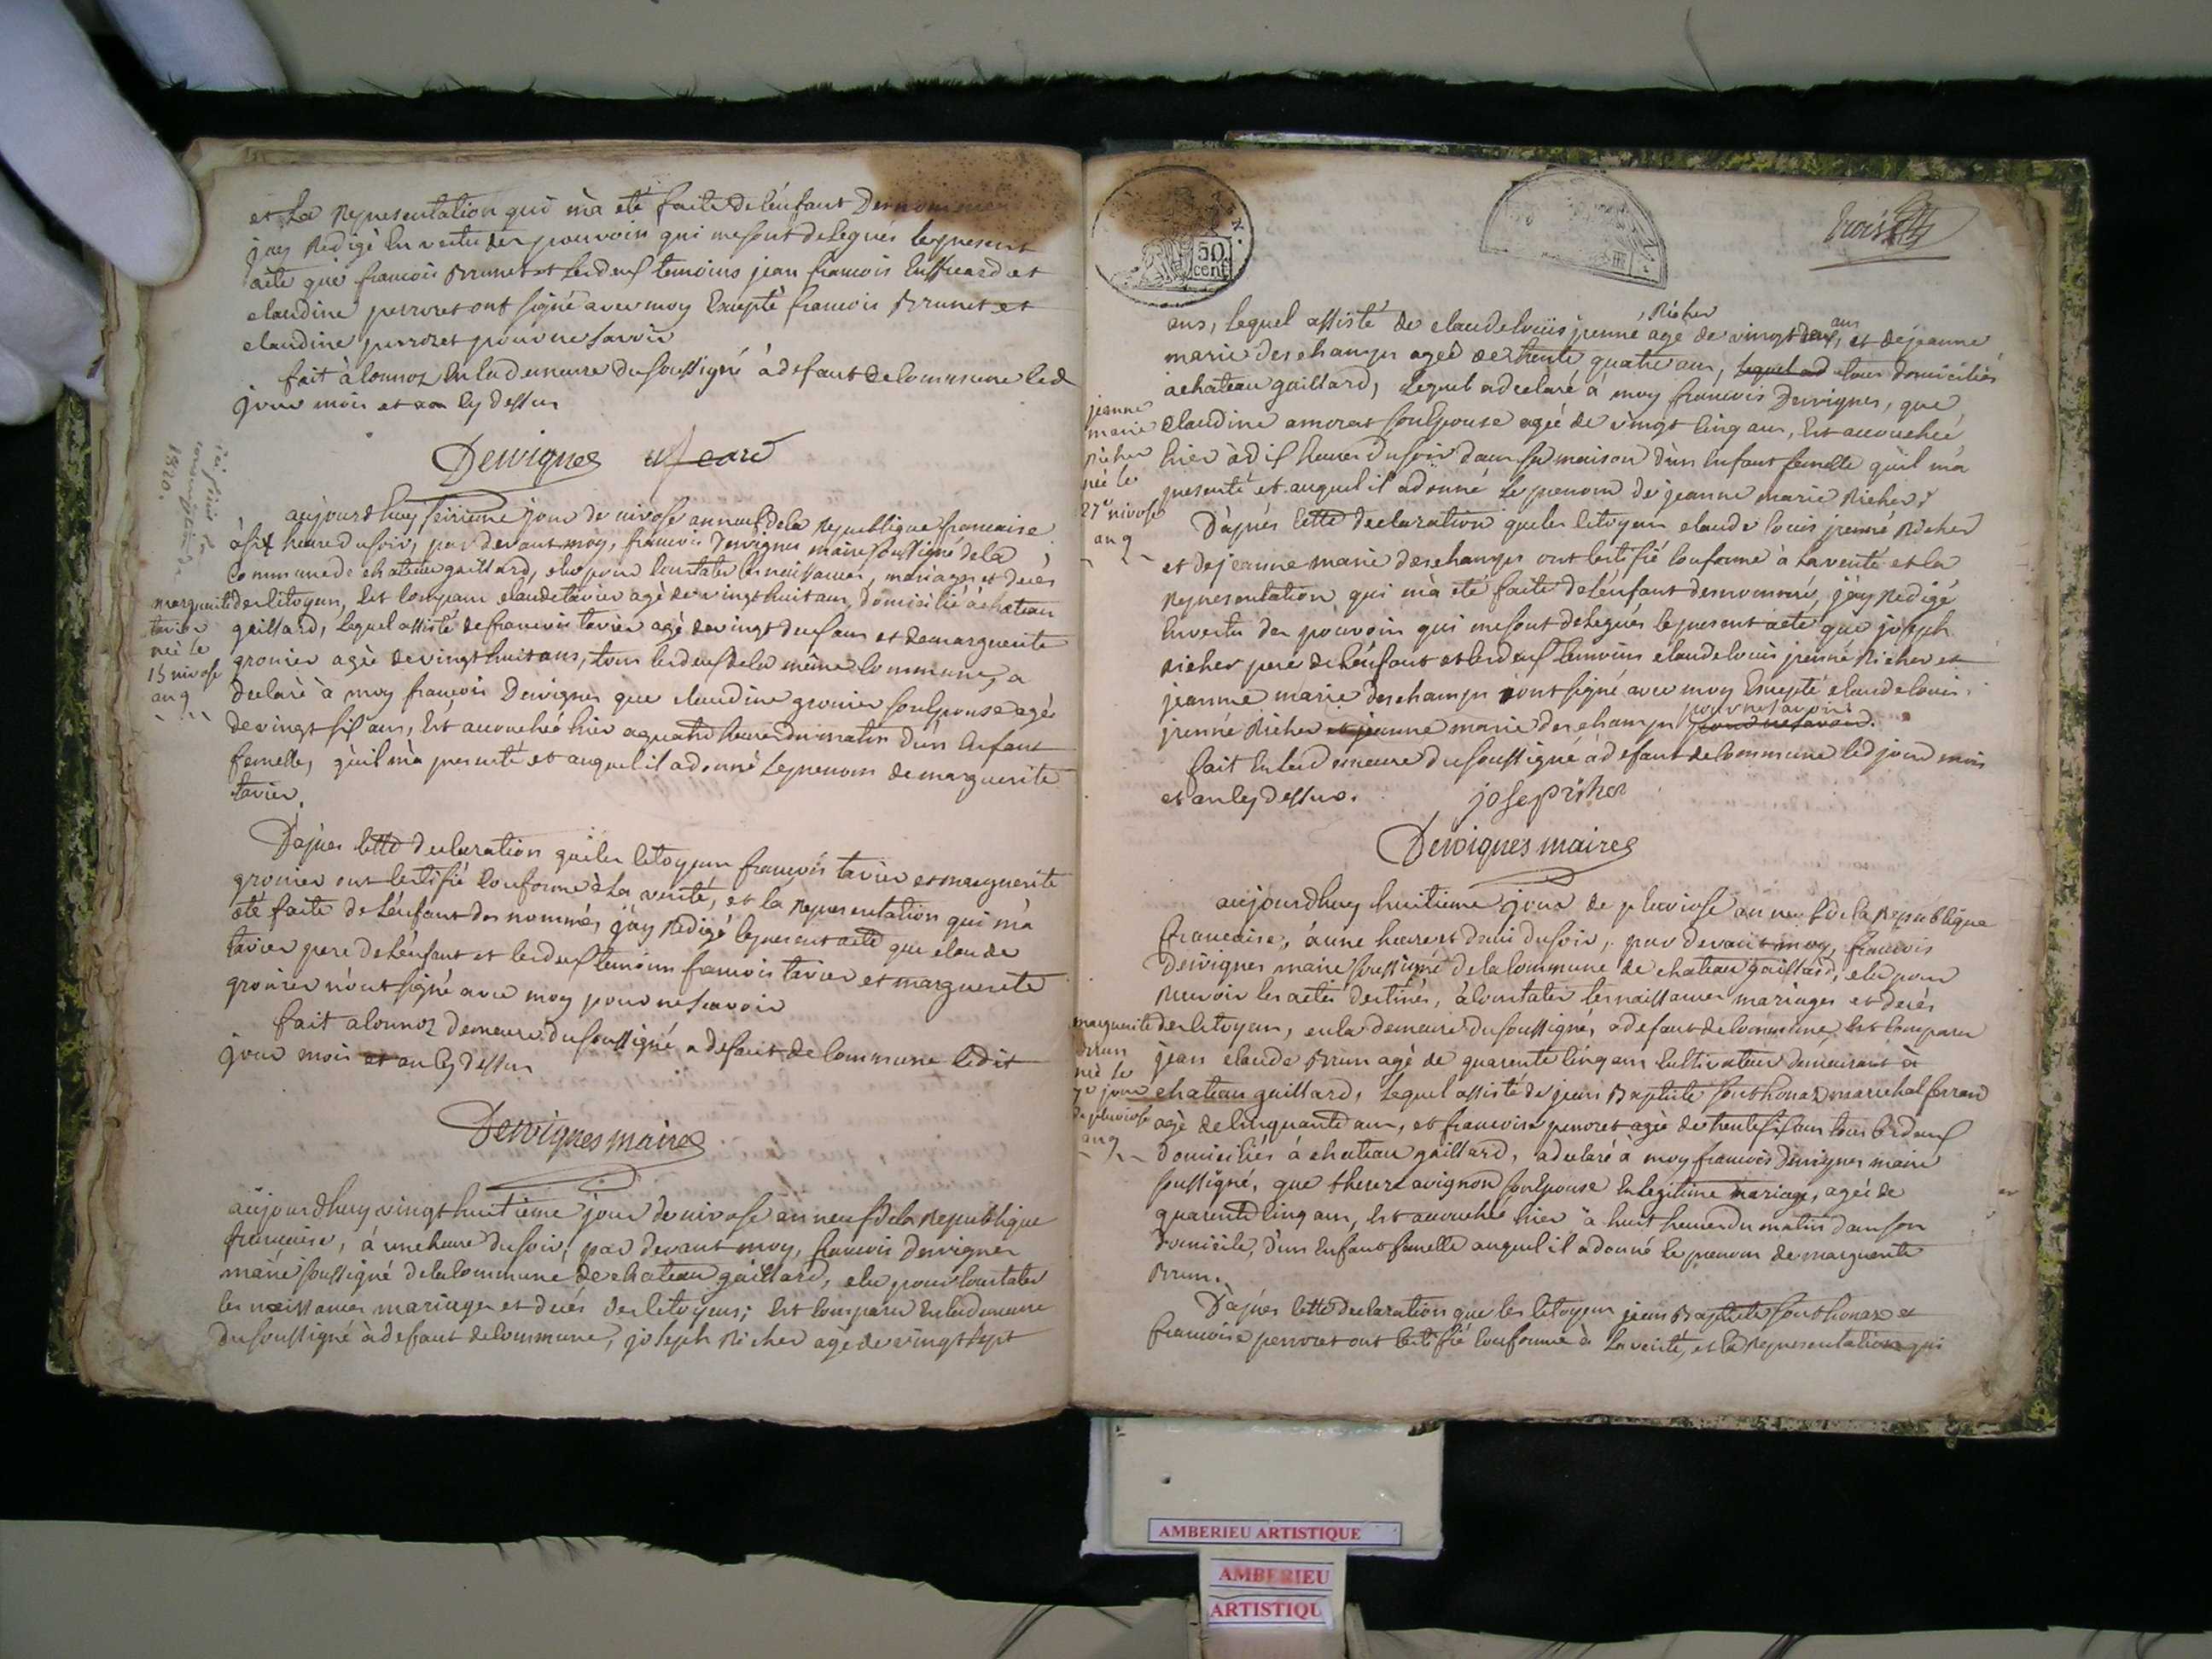 et La Representation qui m'a eté faite de l'énfant Denommée
j'ay Redigé En vertu des pouvoirs qui me sont delegués le present
acte que francois Brunet et les deux temoins jean francois Enffeard et
claudine perroret ont signé avec moy Excepté francois Brunet et
claudine perroret pour ne savoir
fait à lonnoz En la demeure du soussigné à defaut de Commune led
jour mois et an cy dessus
Dervignes
j'ai fini la conscription de 1820.
aujourd'huy seizieme jour de nivose an neuf de la Republique francaise
à six heure du soir, par devant moy, francois Dervignes maire soussigné de la
Commune de chateau gaillard, elu pour Constater les naissances, mariages et decès
marguerite tavier née le 15 nivose an 9
des Citoyens, Est Comparu claude tavier agé de vingt huit ans, domicilié à chateau
gaillard, Lequel assisté de francois tavier agé de vingt deux ans et de marguerite
gronier agée de vingt huit ans, tous les deux de la même Commune, a
declaré à moy francois Dervignes que claudine gronier son Epouse agée
de vingt six ans, Est accouchée hier a quatre heures du matin d'un Enfant
femelle, qu'il m'a presenté et auquel il a donné Le prenom de marguerite
tavier.
D'apres Cette declaration que les Citoyens francois tavier et marguerite
gronier ont Certifié Conforme à La verité, et la Representation qui m'a
eté faite de L'énfant denommé, j'ay Redigé le present acte que claude
tavier pere de L'énfant et les deux temoins francois tavier et marguerite
gronier n'ont signé avec moy pour ne scavoir
fait a lonnoz demeure du soussigné a defaut de Commune ledit
jour mois et an cy dessus
Dervignes maire
aujourd'huy vingt huitième jour de nivose an neuf de la Republique
francaise, à une heure du soir, par devant moy, francois Dervignes
maire soussigné de la Commune de chateau gaillard, elu pour Constater
les naissances mariages et decés des Citoyens; Est Comparu En la demeure
du soussigné à defaut de Commune, joseph Richer age de vingt sept
50 cent
trois
ans, Lequel assisté de claude louis jrenné Richer agé de vingt deux ans, et de jeanne
marie deschamps agée de trente quatre ans, Lequel ad tous domiciliés
a chateau gaillard, Lequel a declaré à moy francois Dervignes, que
jeanne marie Richer née le 27e nivose an 9
Claudine amorat son Epouse agée de vingt Cinq ans, Est accouchée
hier à dix heures du soir dans sa maison d'un Enfant femelle qu'il m'a
presenté et auquel il a donné Le prenom de jeanne marie Richer.
D'aprés Cette declaration que les Citoyens claude louis jrenné Richer
et de jeanne marie deschamps ont Certifié Conforme à La verité et la
Representation qui m'a eté faite de L'énfant denommé, j'ay Redigé
En vertu des pouvoirs qui me sont delegués le present acte que joseph
Richer pere de L'énfant et les deux temoins claude louis jrenné Richer et
jeanne marie deschamps ont signé avec moy Excepté claude louis
jrenné Richer et jeanne marie deschamps pour ne savoir. pour ne savoir
fait En la demeure du soussigné à defaut de Commune led jour mois
et an cy dessus.
josep richer
Dervignes maire
aujourd'huy huitieme jour de pluviose an neuf de la Republique
francaise, à une heure et demi du soir, par devant moy, francois
Dervignes maire soussigné de la Commune de chateau gaillard, elu pour
Recevoir les actes destinés, à Constater les naissances mariages et decés
marguerite Brun née le 7e jour de pluviose an 9
des Citoyens, en la demeure du soussigné, a defaut de Commune, Est Comparu
jean claude Brun agé de quarente Cinq ans Cultivateur demeurant à
chateau gaillard, Lequel assisté de jean Baptiste southonax marechal ferran
agé de Cinquante ans, et francoise perroret agée de trente six ans tous les deux
domiciliés à chateau gaillard, a declaré à moy francois Dervignes maire
soussigné, que therese avignon son Epouse En legitime mariage, agée de
quarente Cinq ans, Est accouchée hier à huit heures du matin dans son
domicile, d'un Enfant femelle auquel il a donné le prenom de marguerite
Brun.
D'aprés Cette declaration que les Citoyens jean Baptiste southonax et
francoise perroret ont Certifié Conforme à La verité, et la Representation qui
AMBERIEU ARTISTIQUE
AMBERIEU
ARTISTIQU